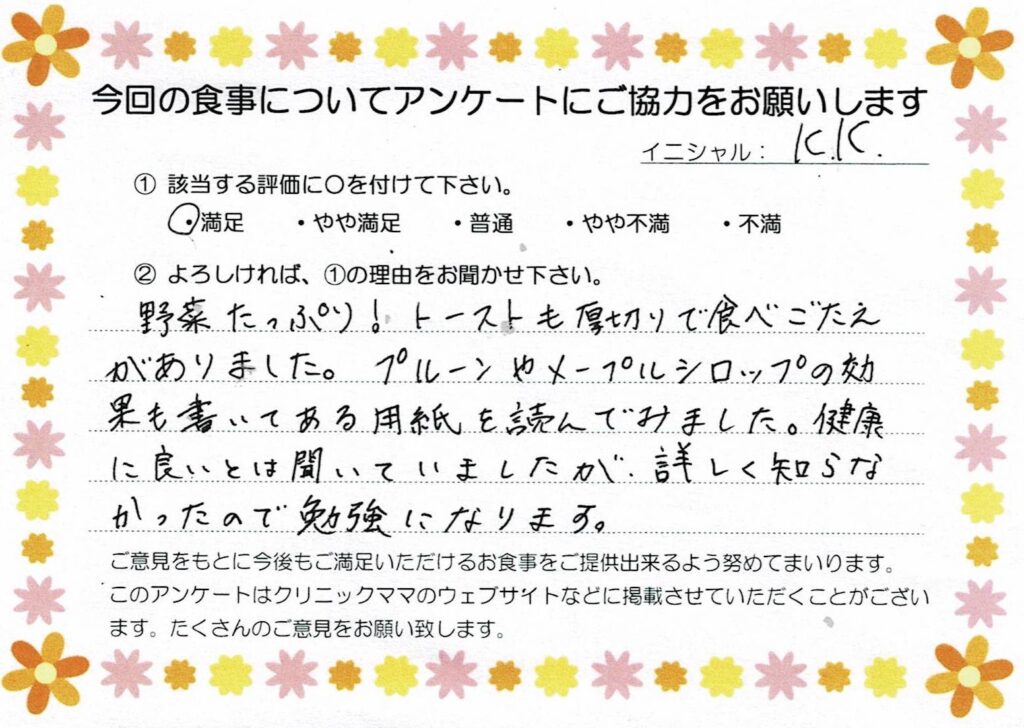 今回の食事についてアンケートにご協力をお願いします
イニシャル： K.K.
① 該当する評価に〇を付けて下さい。
・満足 ・やや満足 ・普通 ・やや不満 ・不満
② よろしければ、①の理由をお聞かせ下さい。
野菜たっぷり！トーストも厚切りで食べごたえ
がありました。プルーンやメープルシロップの効
果も書いてある用紙を読んでみました。健康
に良いとは聞いていましたが、詳しく知らな
かったので勉強になります。
ご意見をもとに今後もご満足いただけるお食事をご提供出来るよう努めてまいります。
このアンケートはクリニックママのウェブサイトなどに掲載させていただくことがござい
ます。たくさんのご意見をお願い致します。